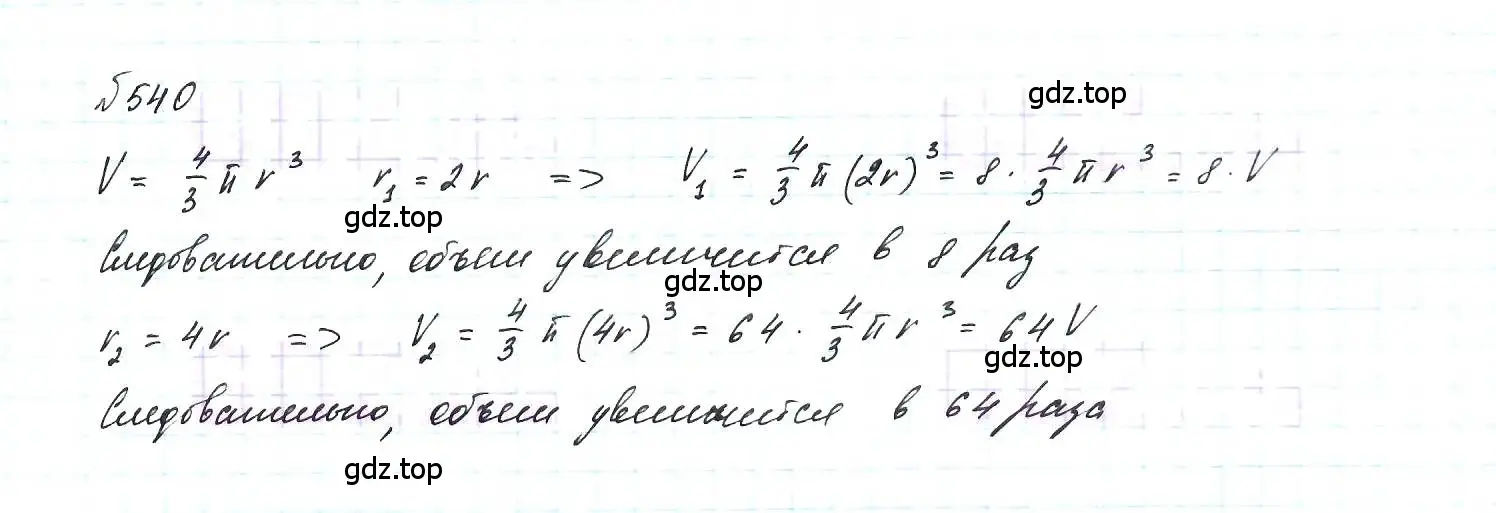 №540
gdz.top
V = 4/3 π r³ r₁ = 2r => V₁ = 4/3 π (2r)³ = 8 · 4/3 π r³ = 8 · V
gdz.top
Следовательно, объем увеличится в 8 раз
gdz.top
r₂ = 4r => V₂ = 4/3 π (4r)³ = 64 · 4/3 π r³ = 64V
gdz.top
Следовательно, объем увеличится в 64 раза
gdz.top